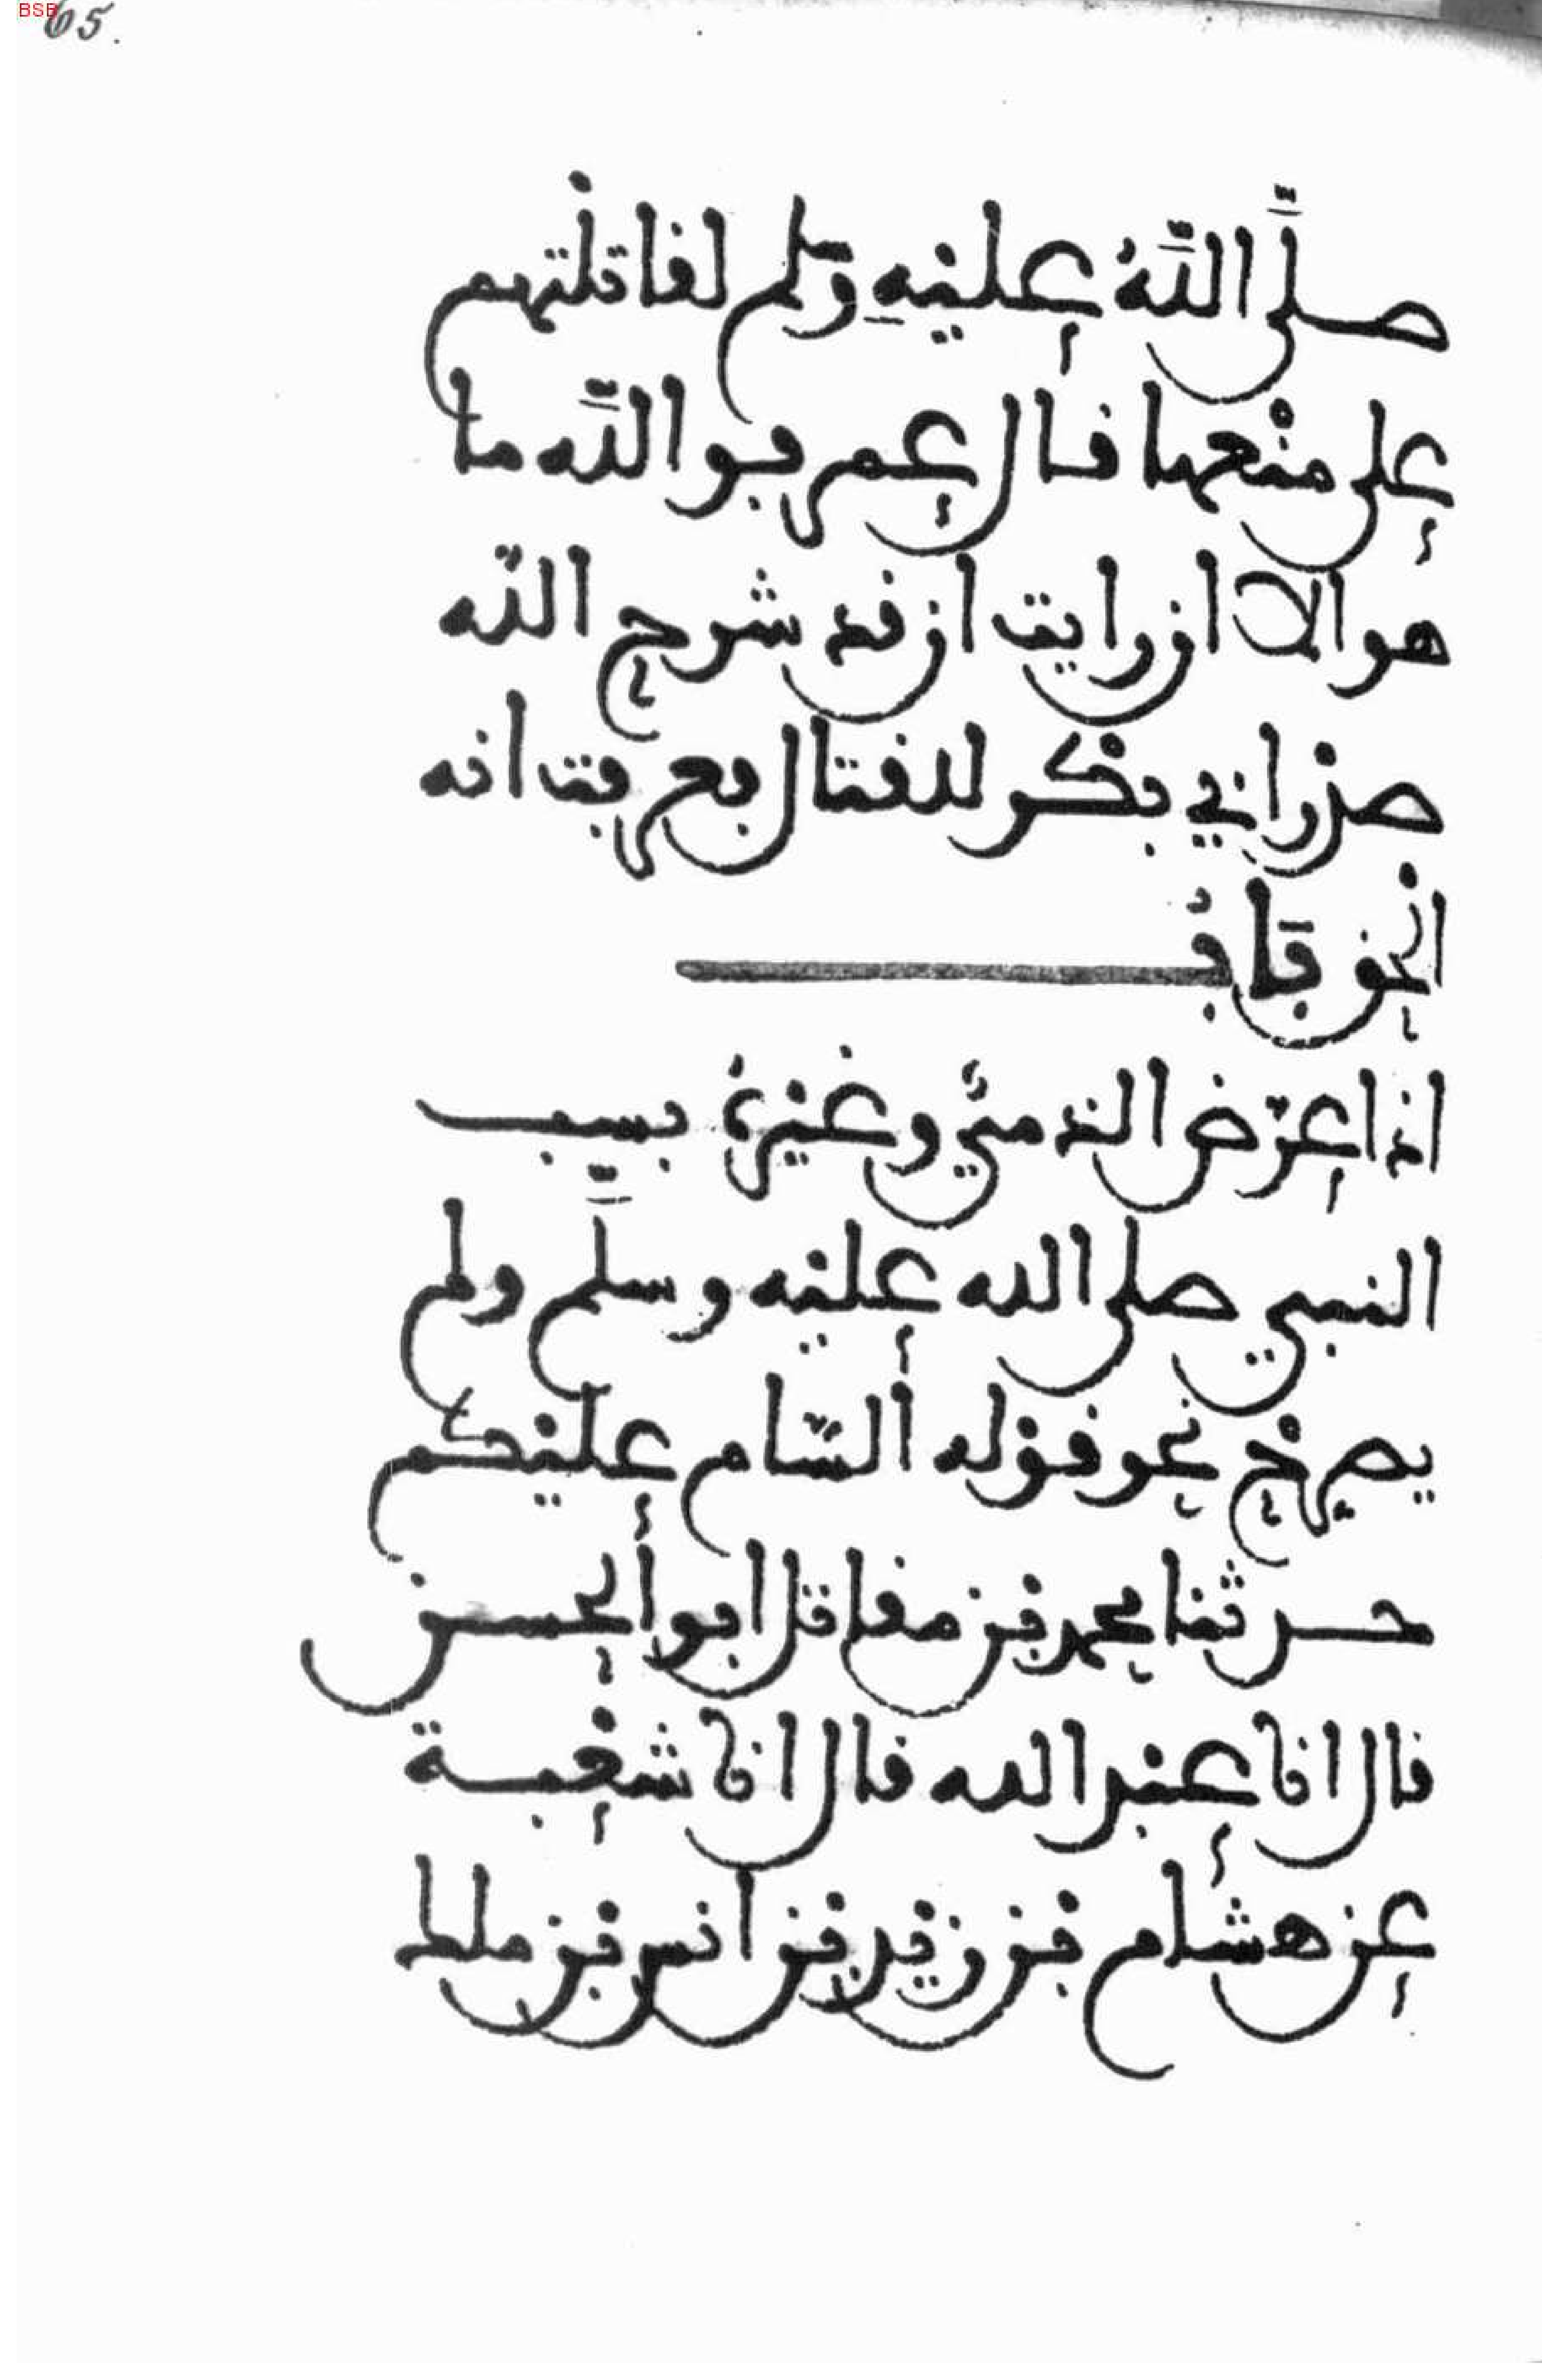 65.
صلَّى اللَّهُ عليْهِ وسَلم لقاتلْتهم
على منْعها قال عمر فوالله ما
هو الا ان رايت ان قد شرح الله
صدْر ابي بكْر للقتال فعرفت انه
الْحق بَابُ
اذا عرّض الذميُّ وغيْرُهُ بسبّ
النبي صلى الله عليْه وسلَّم ولم
يصرحْ نحو قوْله ألسّام عليْكم
حدثنا محمد بْن مقاتل ابو ألْحسن
قال انا عبْد الله قال انا شعْبة
عن هشام بْن زيْد بْن انس بْن ملك